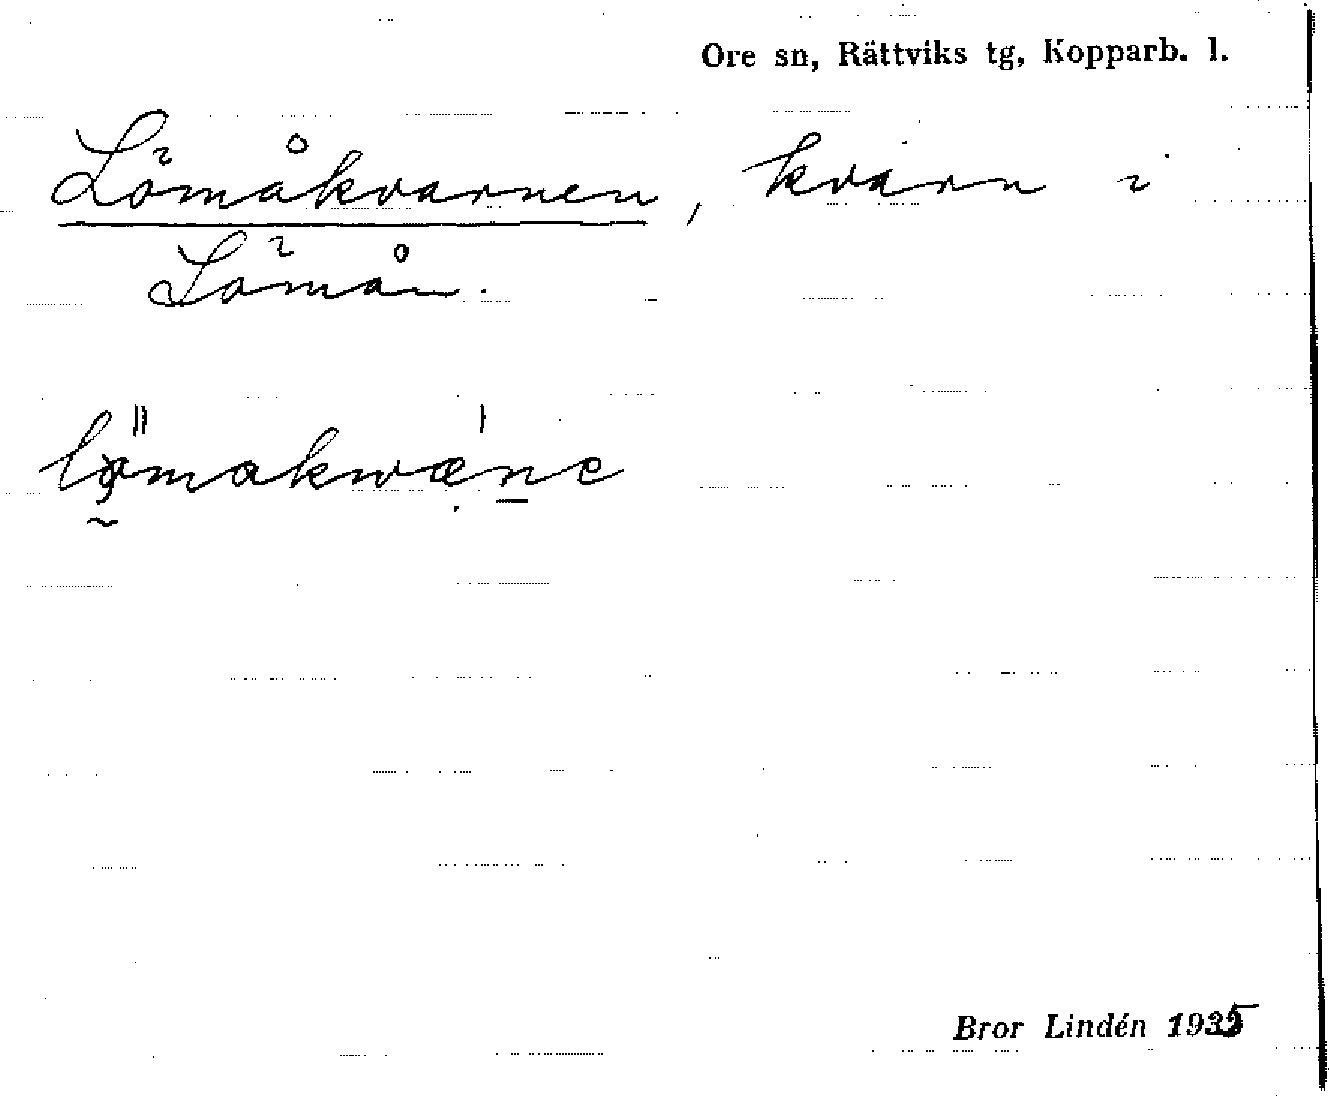 Ore sn, Rättviks tg, Kopparb. l.
Lömåkvarnen, kvarn i
Lömån.
lömakwæne
Bror Lindén 1935